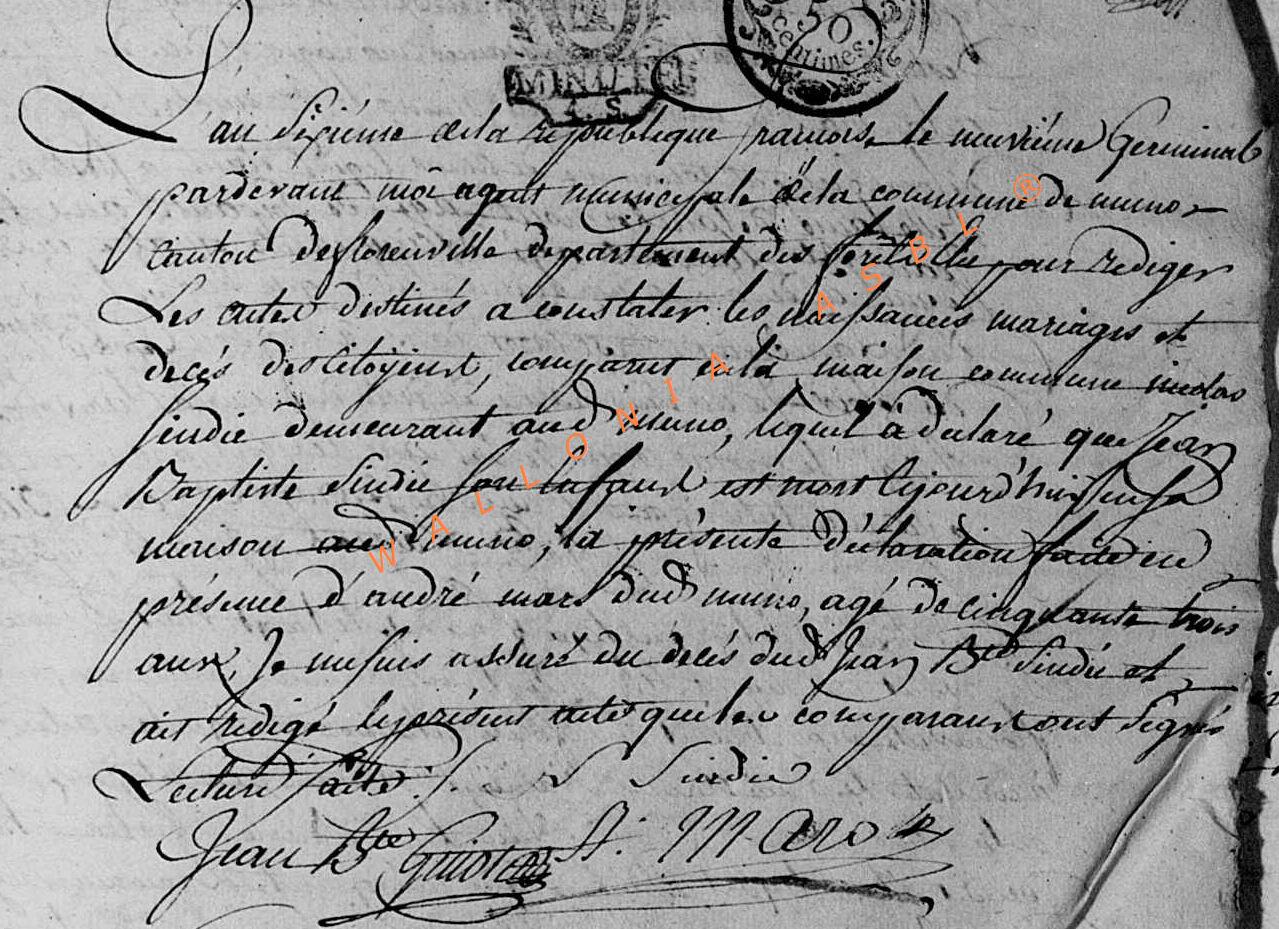 50
centimes.
MINUTE
L'an sixiéme de la république francois, le neuviéme Germinal
pardevant moi agent municipale de la commune de muno
canton de florenville departement des forêts élu pour rediger
Les actes destinés a constater les naissances mariages et
decés des citoyens, comparut en la maison commune nicolas
sindic demeurant aud muno, lequel à declaré que Jean
Baptiste Sindic son enfant est mort cejourd'hui en sa
maison aud muno, la présente déclaration faite en
présence d'andré maro dud muno, agé de cinquante trois
ans, Je me suis assuré du decés dud Jean Bte Sindic et
ait redigé le présent acte que les comparants ont signés
Lecture faite ./. Sindic
Jean Bte A. Maro
WALLONIA ASBL ®